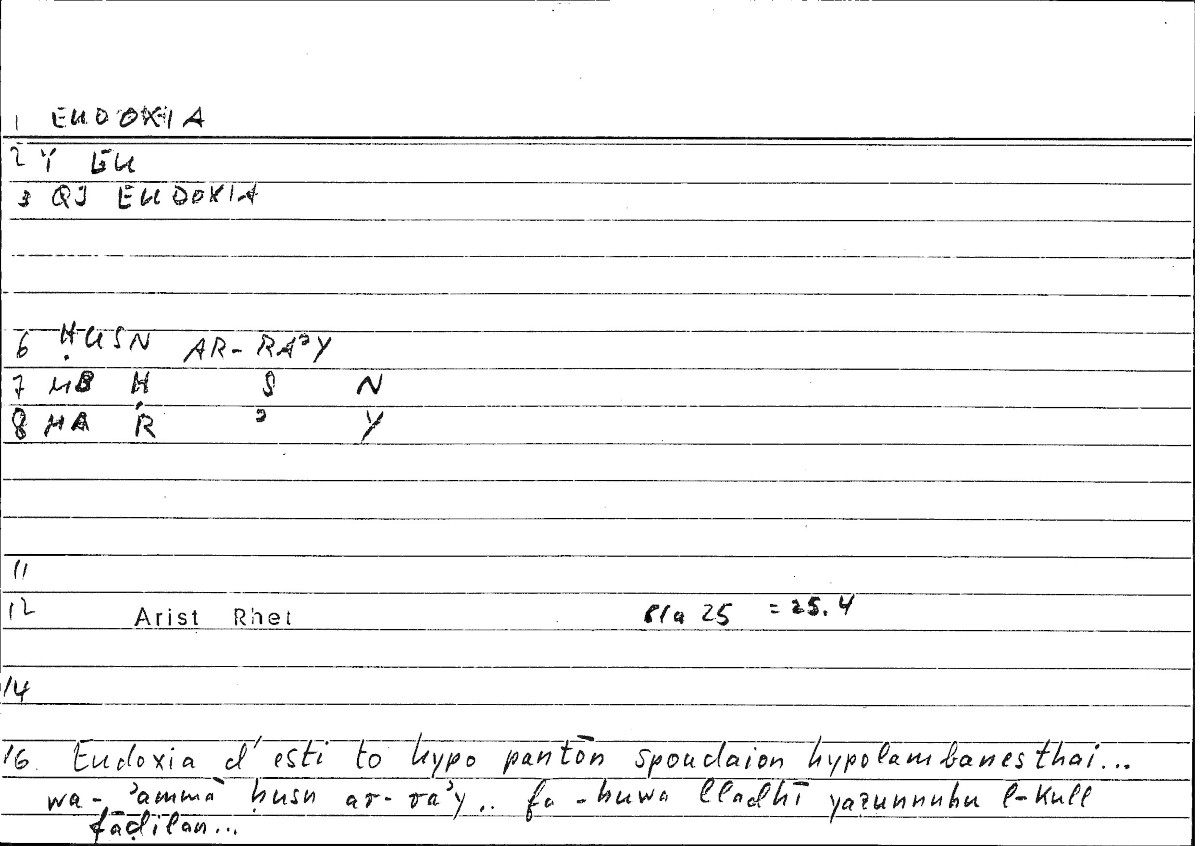 1 EUDOXIA
2 Y EU
3 QJ EUDOXIA
6 ḤUSN AR-RAʾY
7 MB Ḥ S N
8 HA R ʾ Y
11
12 Arist Rhet 61a 25 = 25.4
14
16. Eudoxia d' esti to hypo pantōn spoudaion hypolambanesthai...
wa-ʾammā ḥusn ar-raʾy.. fa-huwa lladhī yaẓunnuhu l-kull
fāḍilan...